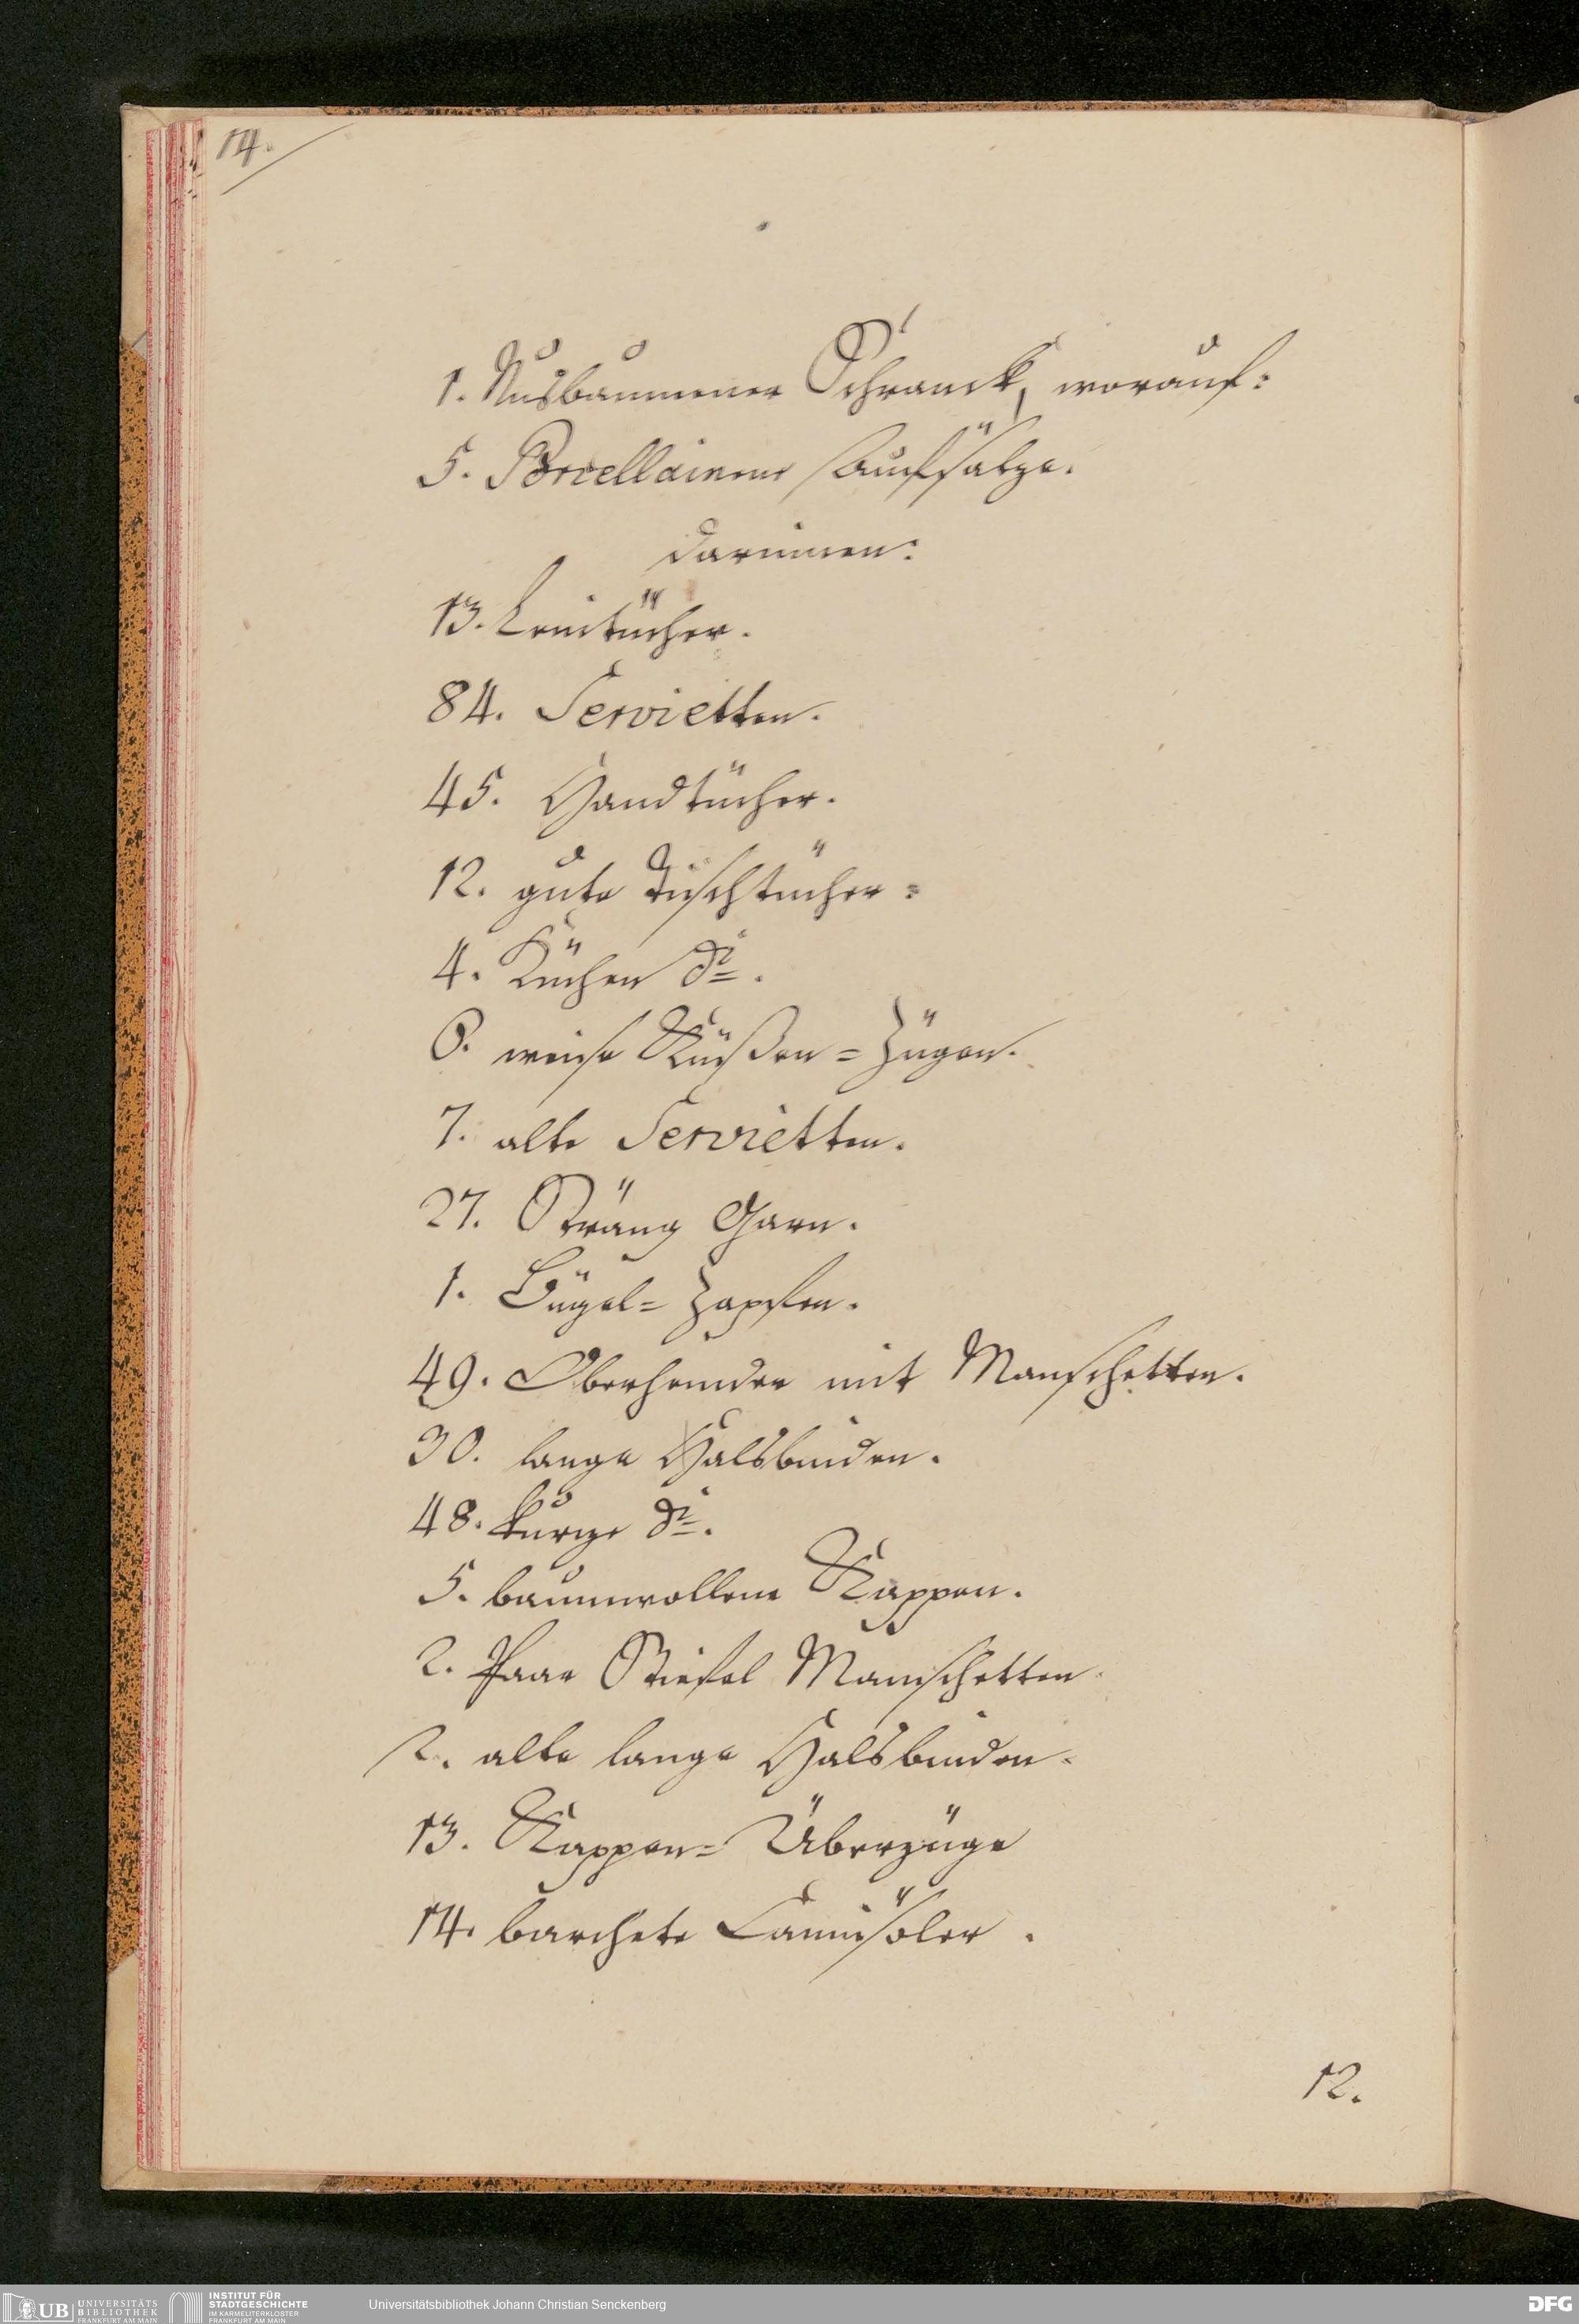 14.
1. Nusbaumener Schranck, worauf:
5. Porcellainene Aufsätze.
darinnen:
13. Leintücher.
84. Servietten.
45. Handtücher.
12. gute Tischtücher:
4. Küchen do.
6. weise Küßen=Zügen.
7. alte Servietten.
27. Sträng Garn.
1. Bügel=Zapfen.
49. Oberhemder mit Manschetten.
30. lange Halsbinden.
48. kurze do.
5. baumwollene Kappen.
2. Paar Stiefel Manschetten
2. alte lange Halsbinden.
13. Kappen=Überzüge
14. barchete Camisöler.
12.
UB UNIVERSITÄTS BIBLIOTHEK FRANKFURT AM MAIN
INSTITUT FÜR STADTGESCHICHTE IM KARMELITERKLOSTER FRANKFURT AM MAIN
Universitätsbibliothek Johann Christian Senckenberg
DFG